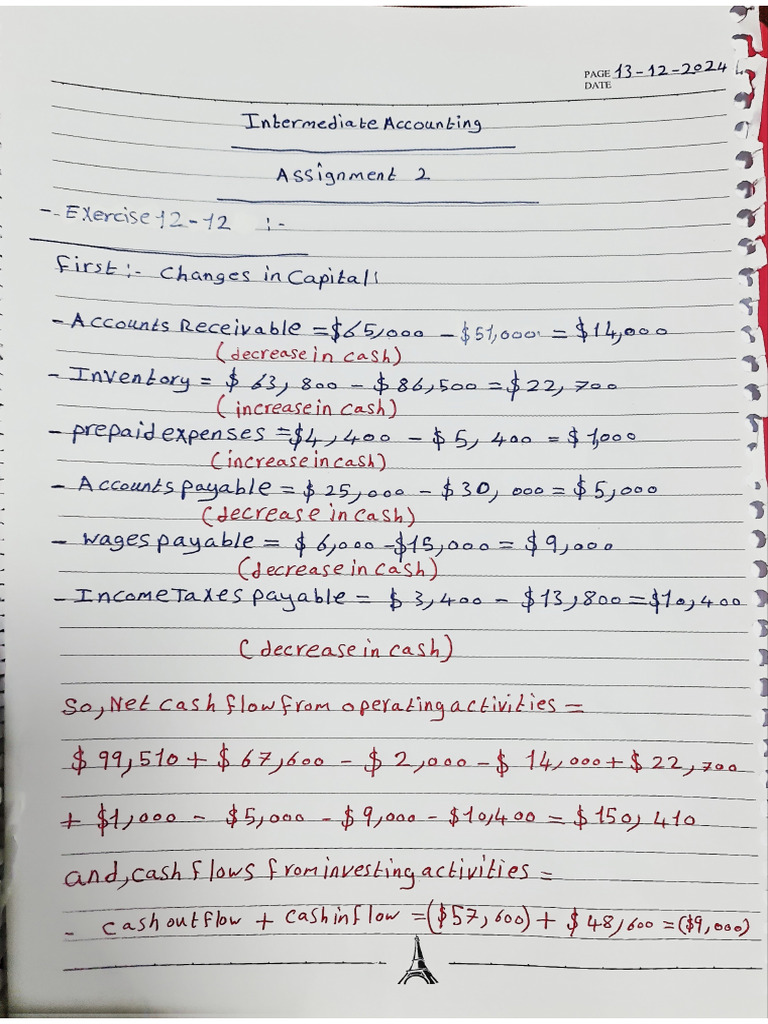 PAGE 13-12-2024
DATE
Intermediate Accounting
Assignment 2
-. Exercise 12-12 :-
First :- Changes in Capital:
- Accounts Receivable = $65,000 - $51,000 = $14,000
(decrease in cash)
- Inventory = $ 63, 800 - $ 86,500 = $22, 700
(increase in cash)
- prepaid expenses = $4, 400 - $ 5, 400 = $ 1,000
(increase in cash)
- Accounts payable = $ 25,000 - $30, 000 = $5,000
(decrease in cash)
- Wages payable = $ 6,000 - $15,000 = $ 9,000
(decrease in cash)
- Income Taxes payable = $ 3,400 - $13,800 = $10,400
(decrease in cash)
So, Net cash flow from operating activities =
$ 99,510 + $ 67,600 - $ 2,000 - $ 14,000 + $ 22,700
+ $1,000 - $5,000 - $ 9,000 - $10,400 = $ 150, 410
and, cash flows from investing activities =
- cash outflow + cash inflow = ($57,600) + $ 48,600 = ($9,000)